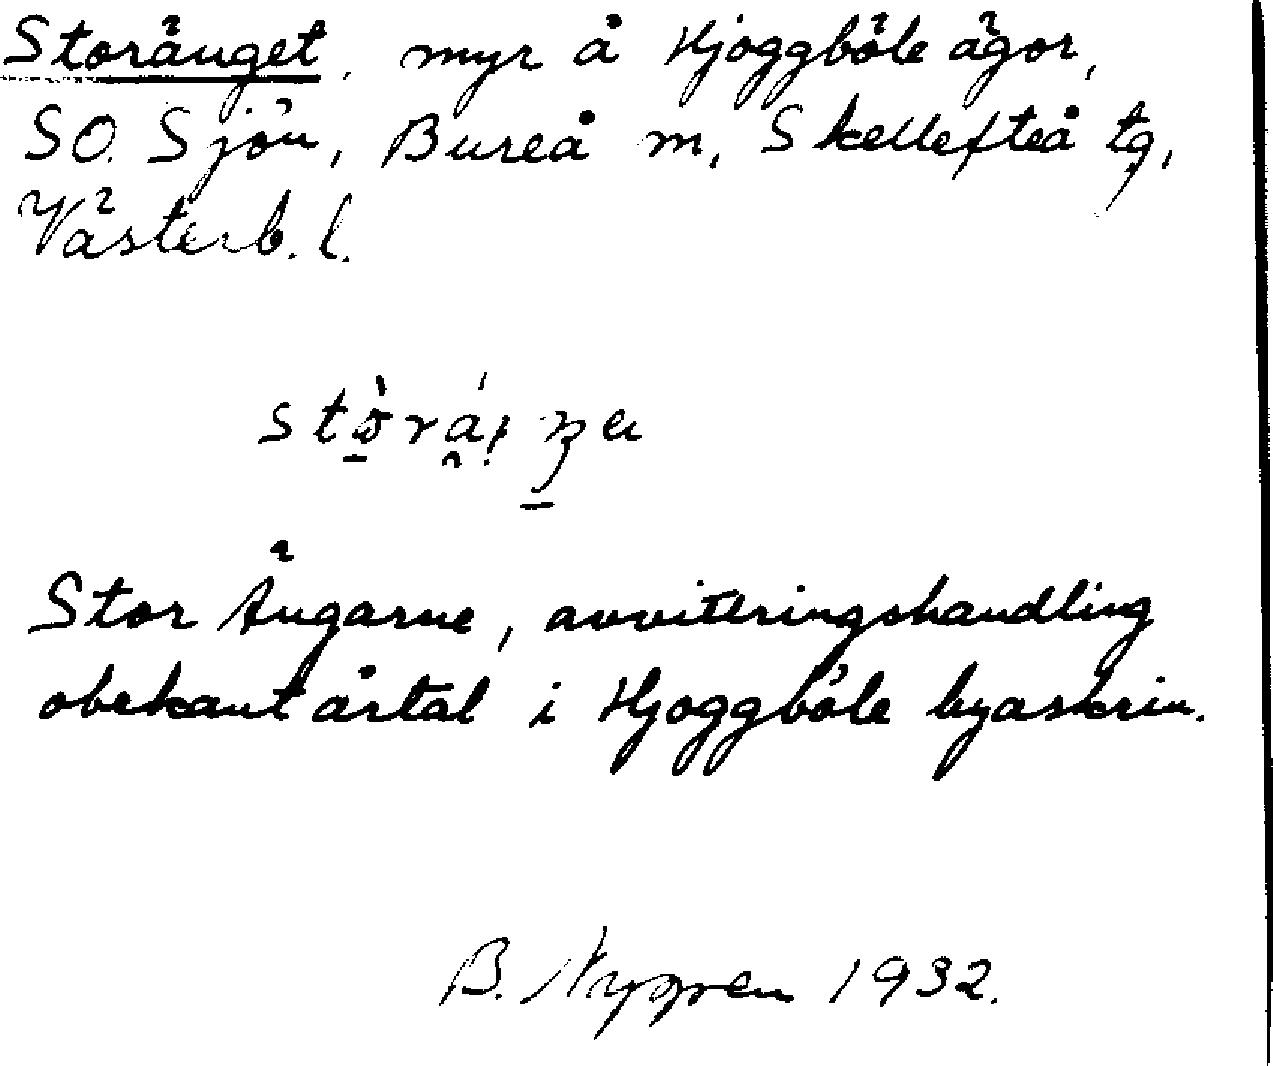 Storänget, myr å Hjoggböle ägor,
SO. Sjön, Bureå m, Skellefteå tg,
Västerb. l.
Stor Ängarne, avvittringshandling
obekant årtal i Hjoggböle byaskrin.
B. Nygren 1932.